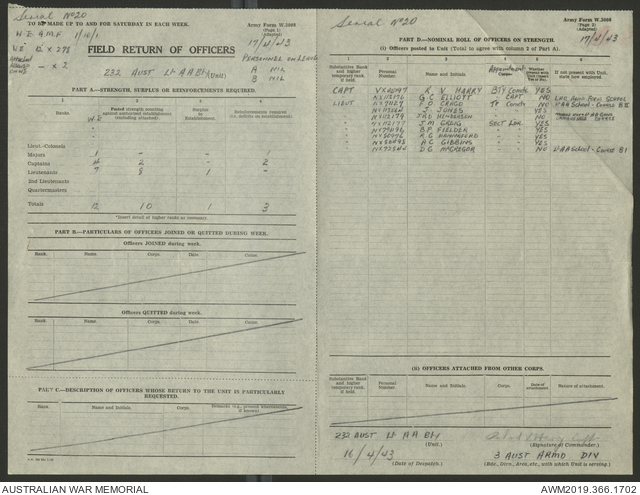 Serial No 20
TO BE MADE UP TO AND FOR SATURDAY IN EACH WEEK.
Army Form W.3008
(Page 1)
(Adapted)
17/4/43
FIELD RETURN OF OFFICERS
232 AUST Lt A A Bty (Unit)
PERSONNEL ON LEAVE
A NIL
B NIL
PART A—STRENGTH, SURPLUS OR REINFORCEMENTS REQUIRED.
1 2 3 4
Ranks
W.E.
Posted strength counting against authorized establishment (excluding attached).
Surplus to Establishment.
Reinforcements required (i.e. deficits on establishment).
Lieut.-Colonels
Majors 1 - -
Captains 4 2 - 2
Lieutenants 7 8 1 -
2nd Lieutenants
Quartermasters
Totals 12 10 1 3
*Insert detail of higher ranks as necessary.
PART B—PARTICULARS OF OFFICERS JOINED OR QUITTED DURING WEEK.
Officers JOINED during week.
Rank. Name. Corps. Date.
Officers QUITTED during week.
Rank. Name. Corps. Date.
PART C.—DESCRIPTION OF OFFICERS WHOSE RETURN TO THE UNIT IS PARTICULARLY REQUESTED.
Rank. Name and Initials. Corps.
Serial No 20
Army Form W.3008
(Page 2)
(Adapted)
17/4/43
PART D—NOMINAL ROLL OF OFFICERS ON STRENGTH.
(i) Officers posted to Unit (Total to agree with column 2 of Part A).
1 2 3 4 5 6
Substantive Rank and higher temporary rank if held.
Personal Number.
Name and Initials.
Appointment
Corps.
If not present with Unit, state how employed.
CAPT R V HARRY Bty Comdr YES
G C ELIOTT CAPT NO
LIEUT F O CARGO Tp Comdr NO
J JONES YES
J R D HENDERSON NO
J M CREIG YES
B P FIELDER YES
R G HANNAFORD YES
A C GIBBINS YES
D G McGREGOR NO
(ii) OFFICERS ATTACHED FROM OTHER CORPS.
Substantive Rank and higher temporary rank, if held.
Personal Number.
Name and Initials.
Corps.
Date of attachment.
Nature of attachment.
232 AUST Lt A A Bty
(Unit.)
(Signature of Commander.)
16/4/43
(Date of Despatch.)
3 AUST ARMD DIV
(Bde., Divn., Area, etc., with which Unit is serving.)
AUSTRALIAN WAR MEMORIAL
AWM2019.366.1702